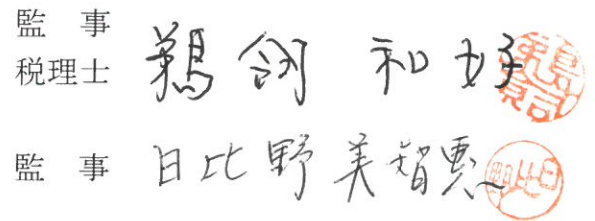 監事
税理士 鵜飼 和好
監事 日比野 美智恵
日比野